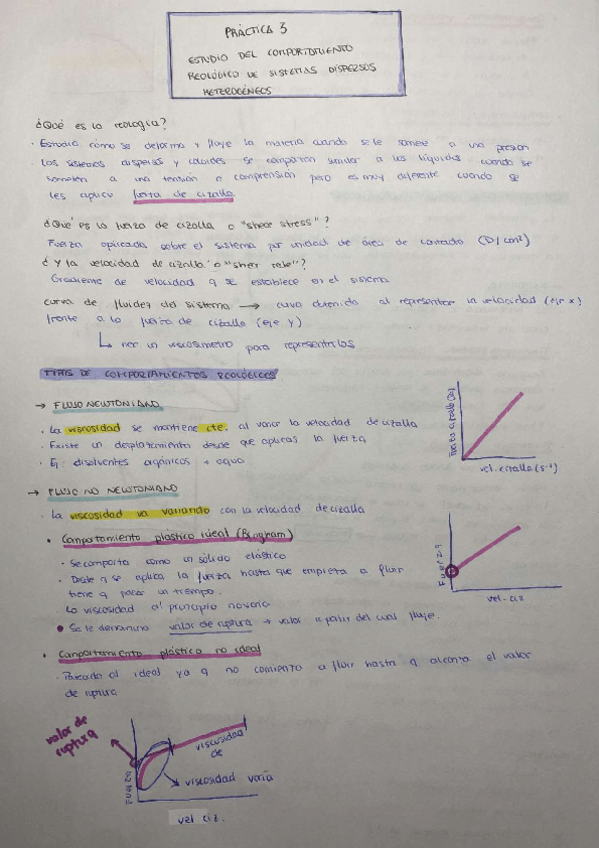 PRÁCTICA 3
ESTUDIO DEL COMPORTAMIENTO
REOLÓGICO DE SISTEMAS DISPERSOS
HETEROGÉNEOS
¿Qué es la reología?
· Estudia cómo se deforma y fluye la materia cuando se le somete a una presión
· Los sistemas dispersos y coloides se comportan similar a los líquidos cuando se
someten a una tensión o comprensión pero es muy diferente cuando se
les aplica fuerza de cizalla
¿Qué es la fuerza de cizalla o "shear stress"?
Fuerza aplicada sobre el sistema por unidad de área de contacto (D/cm²)
¿Y la velocidad de cizalla o "shear rate"?
Gradiente de velocidad q se establece en el sistema
curva de fluidez del sistema → curva obtenida al representar la velocidad (eje x)
frente a la fuerza de cizalla (eje y)
un viscosímetro para representarlas
TIPOS DE COMPORTAMIENTOS REOLÓGICOS
→ FLUJO NEWTONIANO
· La viscosidad se mantiene cte. al variar la velocidad de cizalla
· Existe un desplazamiento desde que aplicas la fuerza
· Ej: disolventes orgánicos + agua
Fuerza cizalla
vel. cizalla (s⁻¹)
→ FLUJO NO NEWTONIANO
· La viscosidad va variando con la velocidad de cizalla
• Comportamiento plástico ideal (Bingham)
· Se comporta como un sólido elástico
· Desde q se aplica la fuerza hasta que empieza a fluir
tiene q pasar un tiempo.
· La viscosidad al principio no varía
• Se le denomina valor de ruptura → valor a partir del cual fluye.
Fuerza
vel. ciz
• Comportamiento plástico no ideal
· Parecido al ideal ya q no comienza a fluir hasta q alcanza el valor
de ruptura
valor de
ruptura
viscosidad
de
viscosidad varía
Fuerza
vel ciz.